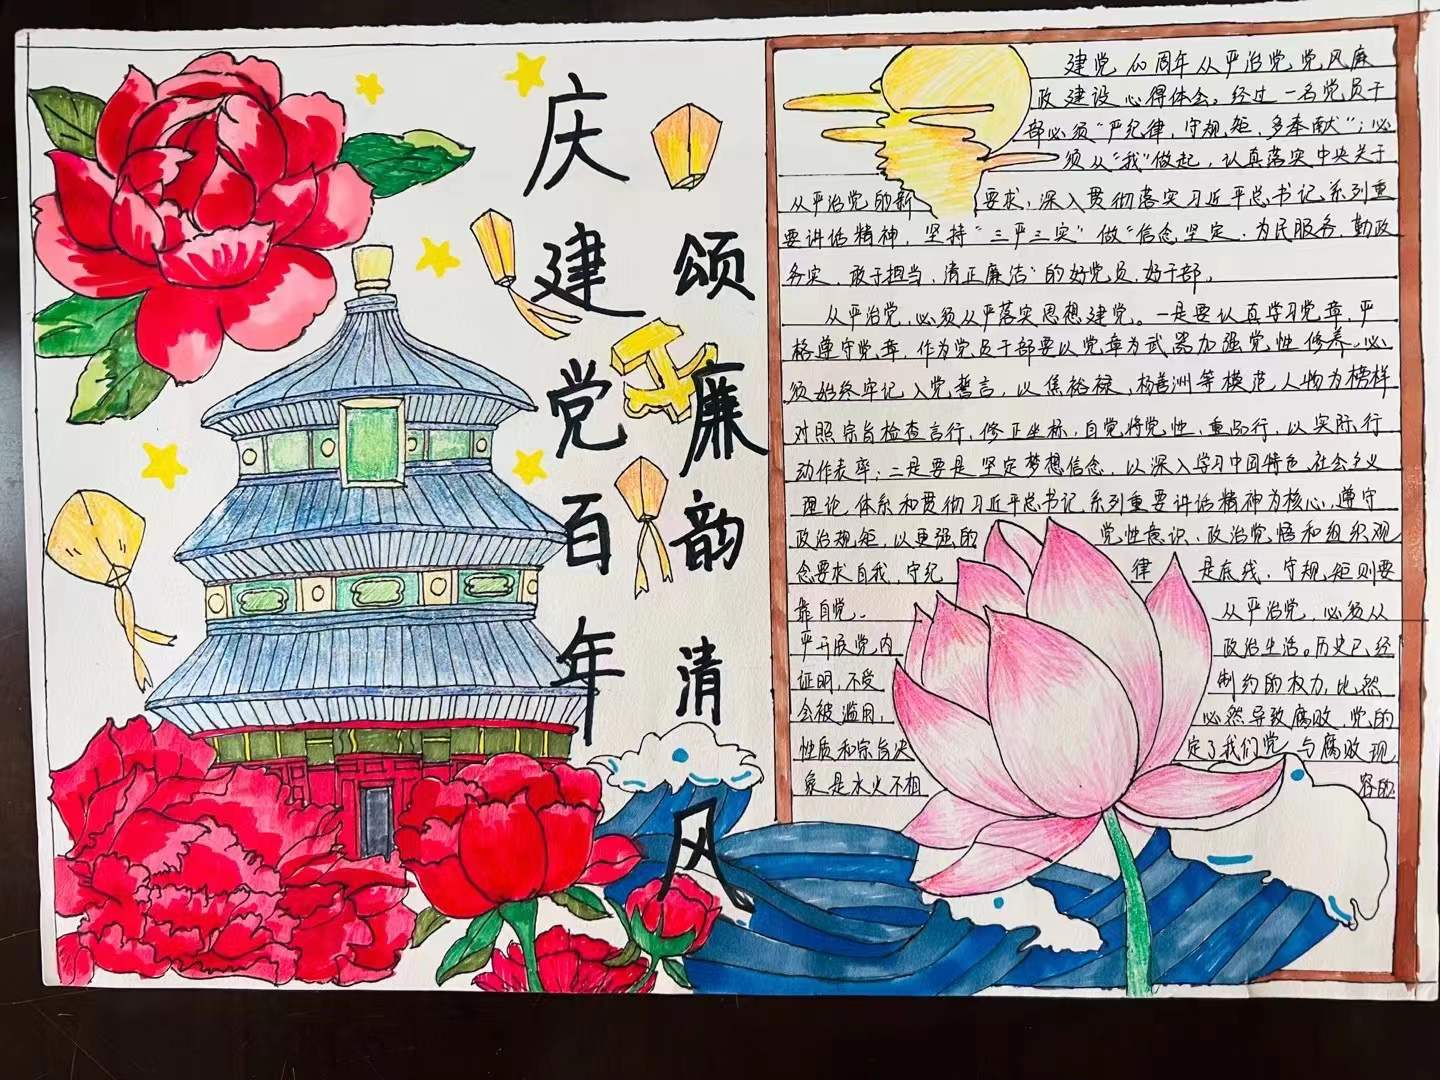 庆建党百年
颂廉韵清风
建党100周年从严治党党风廉
政建设心得体会。经过一名党员干
部必须"严纪律,守规矩,多奉献";必
须从"我"做起,认真落实中央关于
从严治党的新要求,深入贯彻落实习近平总书记系列重
要讲话精神,坚持"三严三实"做"信念坚定、为民服务、勤政
务实、敢于担当、清正廉洁"的好党员、好干部。
从严治党,必须从严落实思想建党。一是要认真学习党章,严
格尊守党章,作为党员干部要以党章为武器加强党性修养,必
须始终牢记入党誓言,以焦裕禄、杨善洲等模范人物为榜样
对照宗旨检查言行,修正坐标,自觉将党性、重品行,以实际行
动作表率;二是要是坚定梦想信念,以深入学习中国特色社会主义
理论体系和贯彻习近平总书记系列重要讲话精神为核心,遵守
政治规矩,以更强的党性意识、政治觉悟和组织观
念要求自我,守纪律是底线,守规矩则要
靠自觉。从严治党,必须从
严开展党内政治生活。历史已经
证明,不受制约的权力,必然
会被滥用,必然导致腐败,党的
性质和宗旨决定了我们党与腐败现
象是水火不相容的